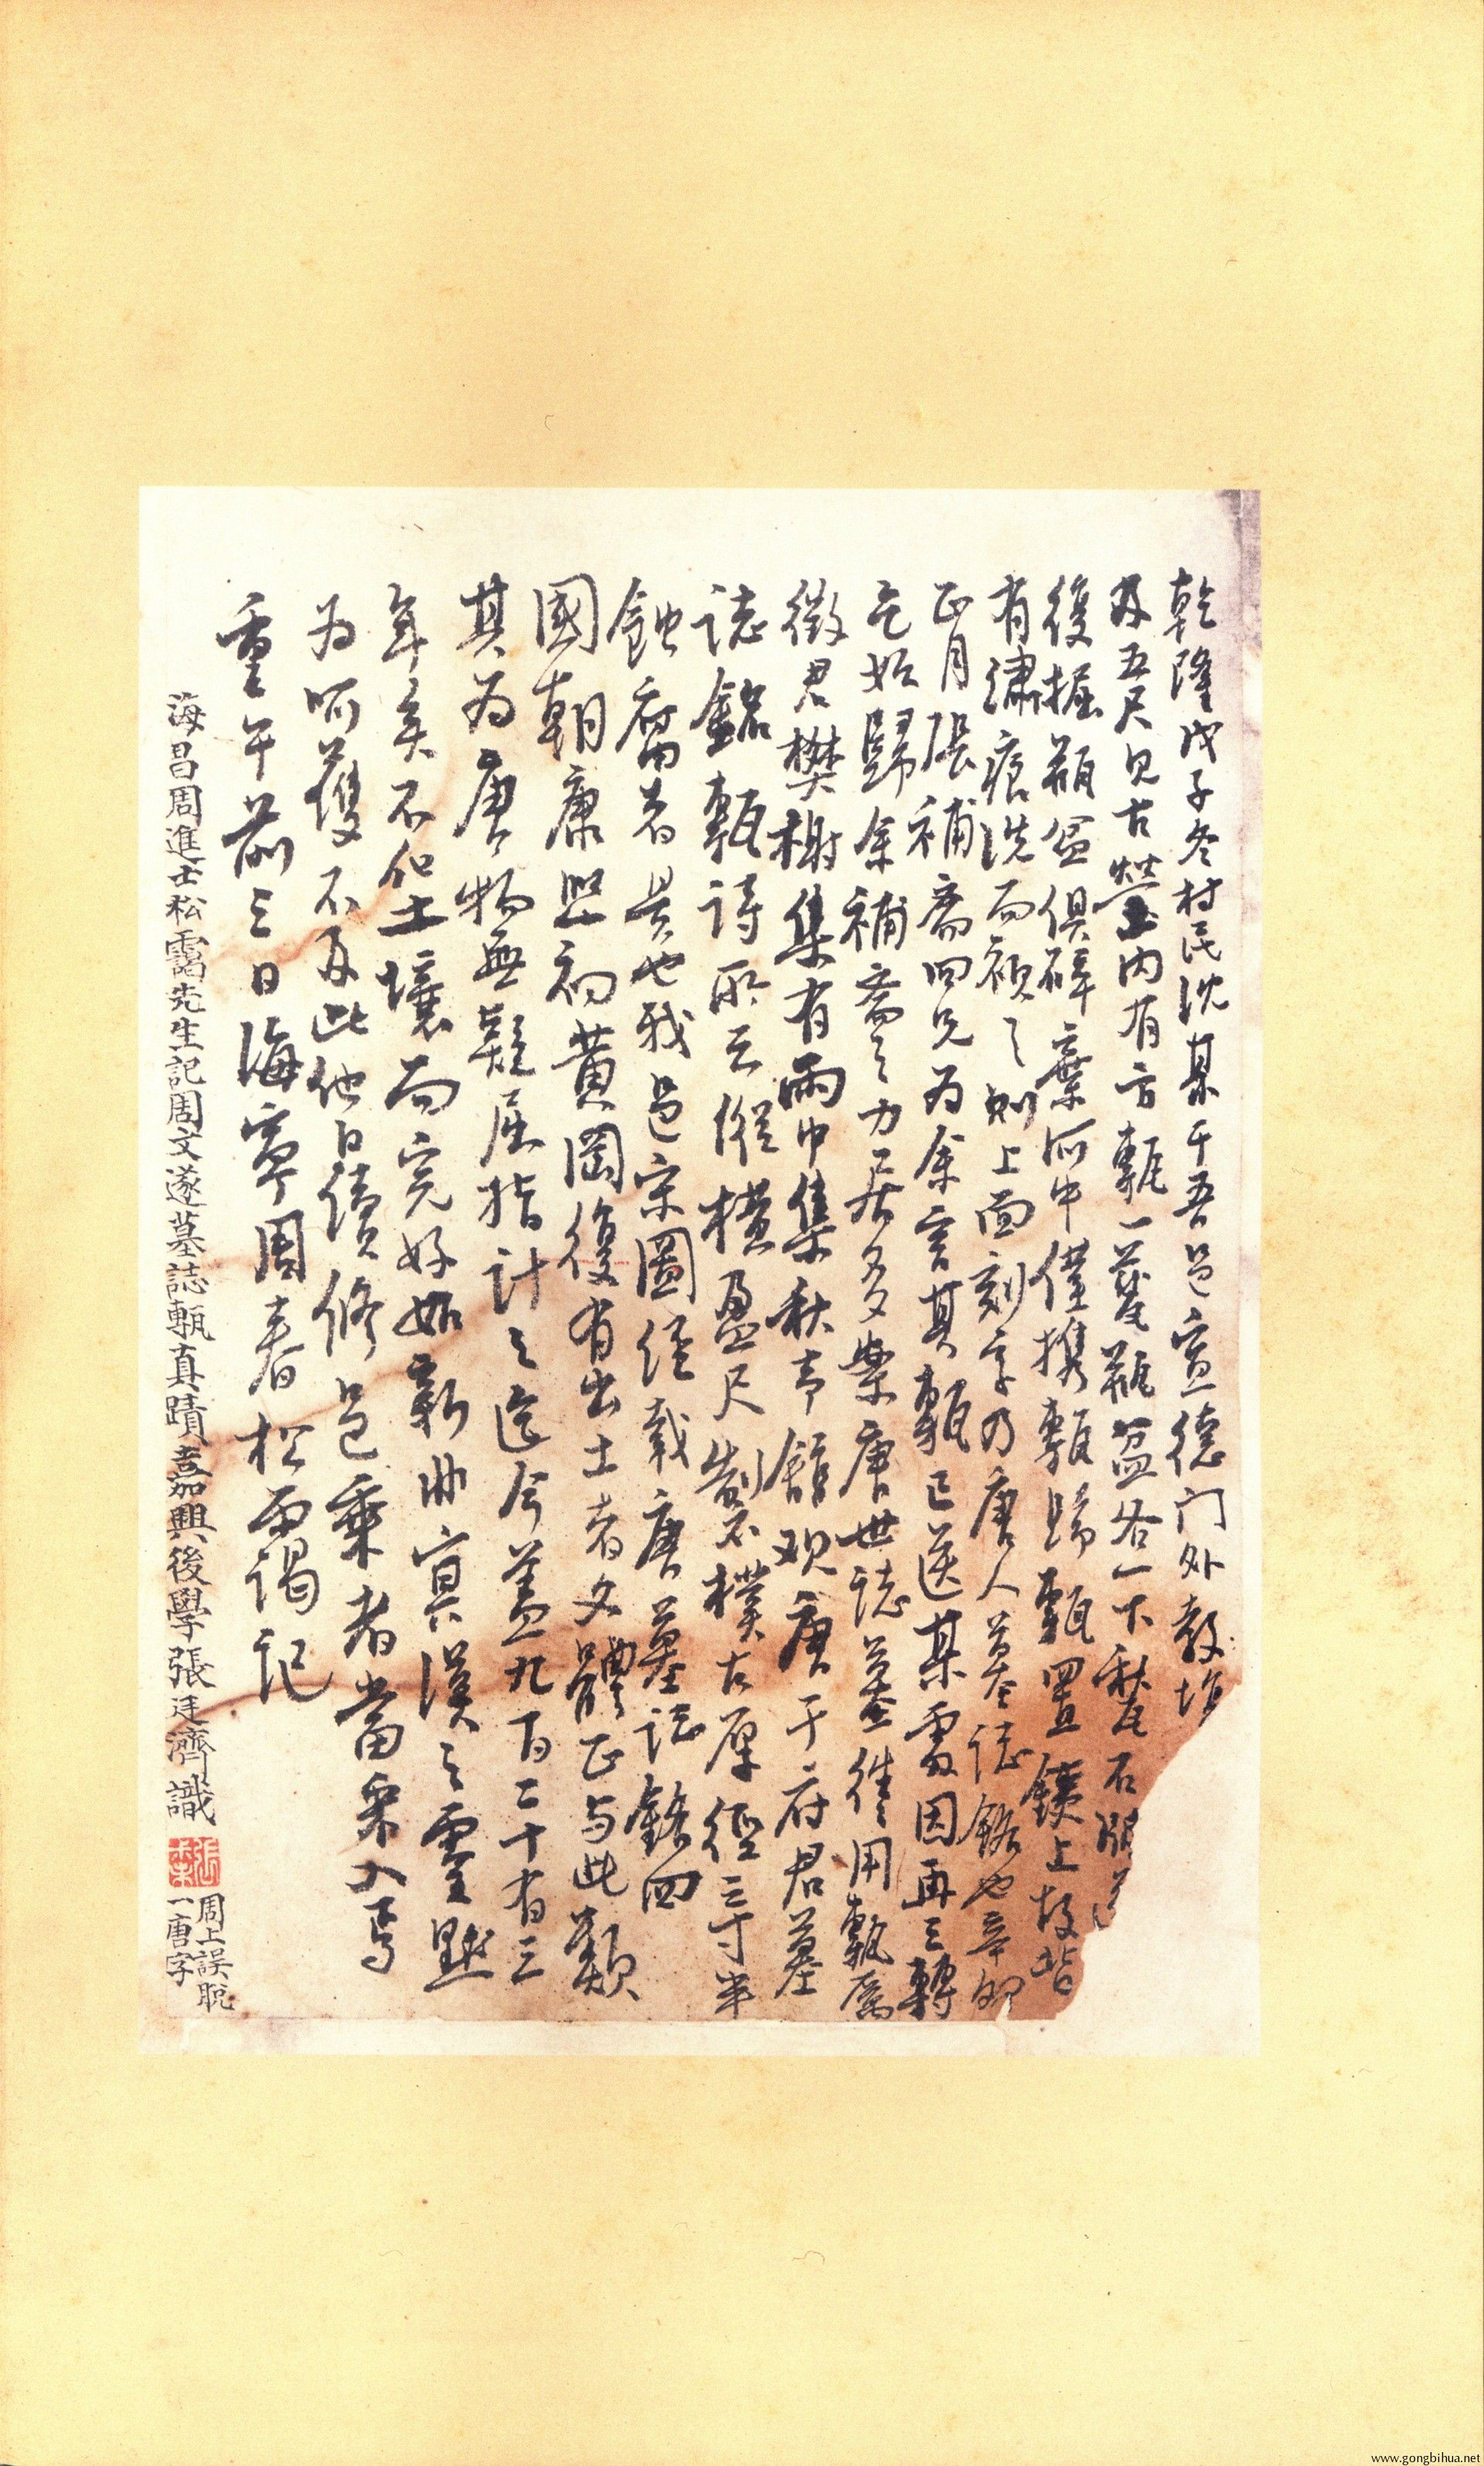 乾隆戊子冬村民沈某于吾邑宣德门外教場
及五尺見古塋内有方甎一瓷瓶盆各一下甃石
復掘瓶盆俱碎棄河中僅携甎歸甎置鏡上故皆
有繡痕洗而視之则上面刻字乃唐人墓誌銘也辛卯
正月張補齋四兄为余言其甎已送某處因再三轉
乞始歸余補齋之力居多案唐世誌墓徃徃用甎厲
徵君樊榭集有雨中集秋声館观唐于府君墓
誌銘甎詩所云縱橫盈尺製樸古厚徑三寸半
蝕腐者是也我邑宋圖經載唐墓誌銘四
國朝康熙初黃岡復有出土者文體正与此類
其为唐物無疑屈指計之迄今盖九百二十有三
年矣不僅土壤而完好如新冲寞漠之靈黙
为呵護不及此他日續修邑乘者當采入焉
重午前三日海寧周春松靄記
海昌周進士松靄先生記周文遂墓誌甎真蹟嘉興後學張廷濟識
周上誤脫
一唐字
www.gongbihua.net